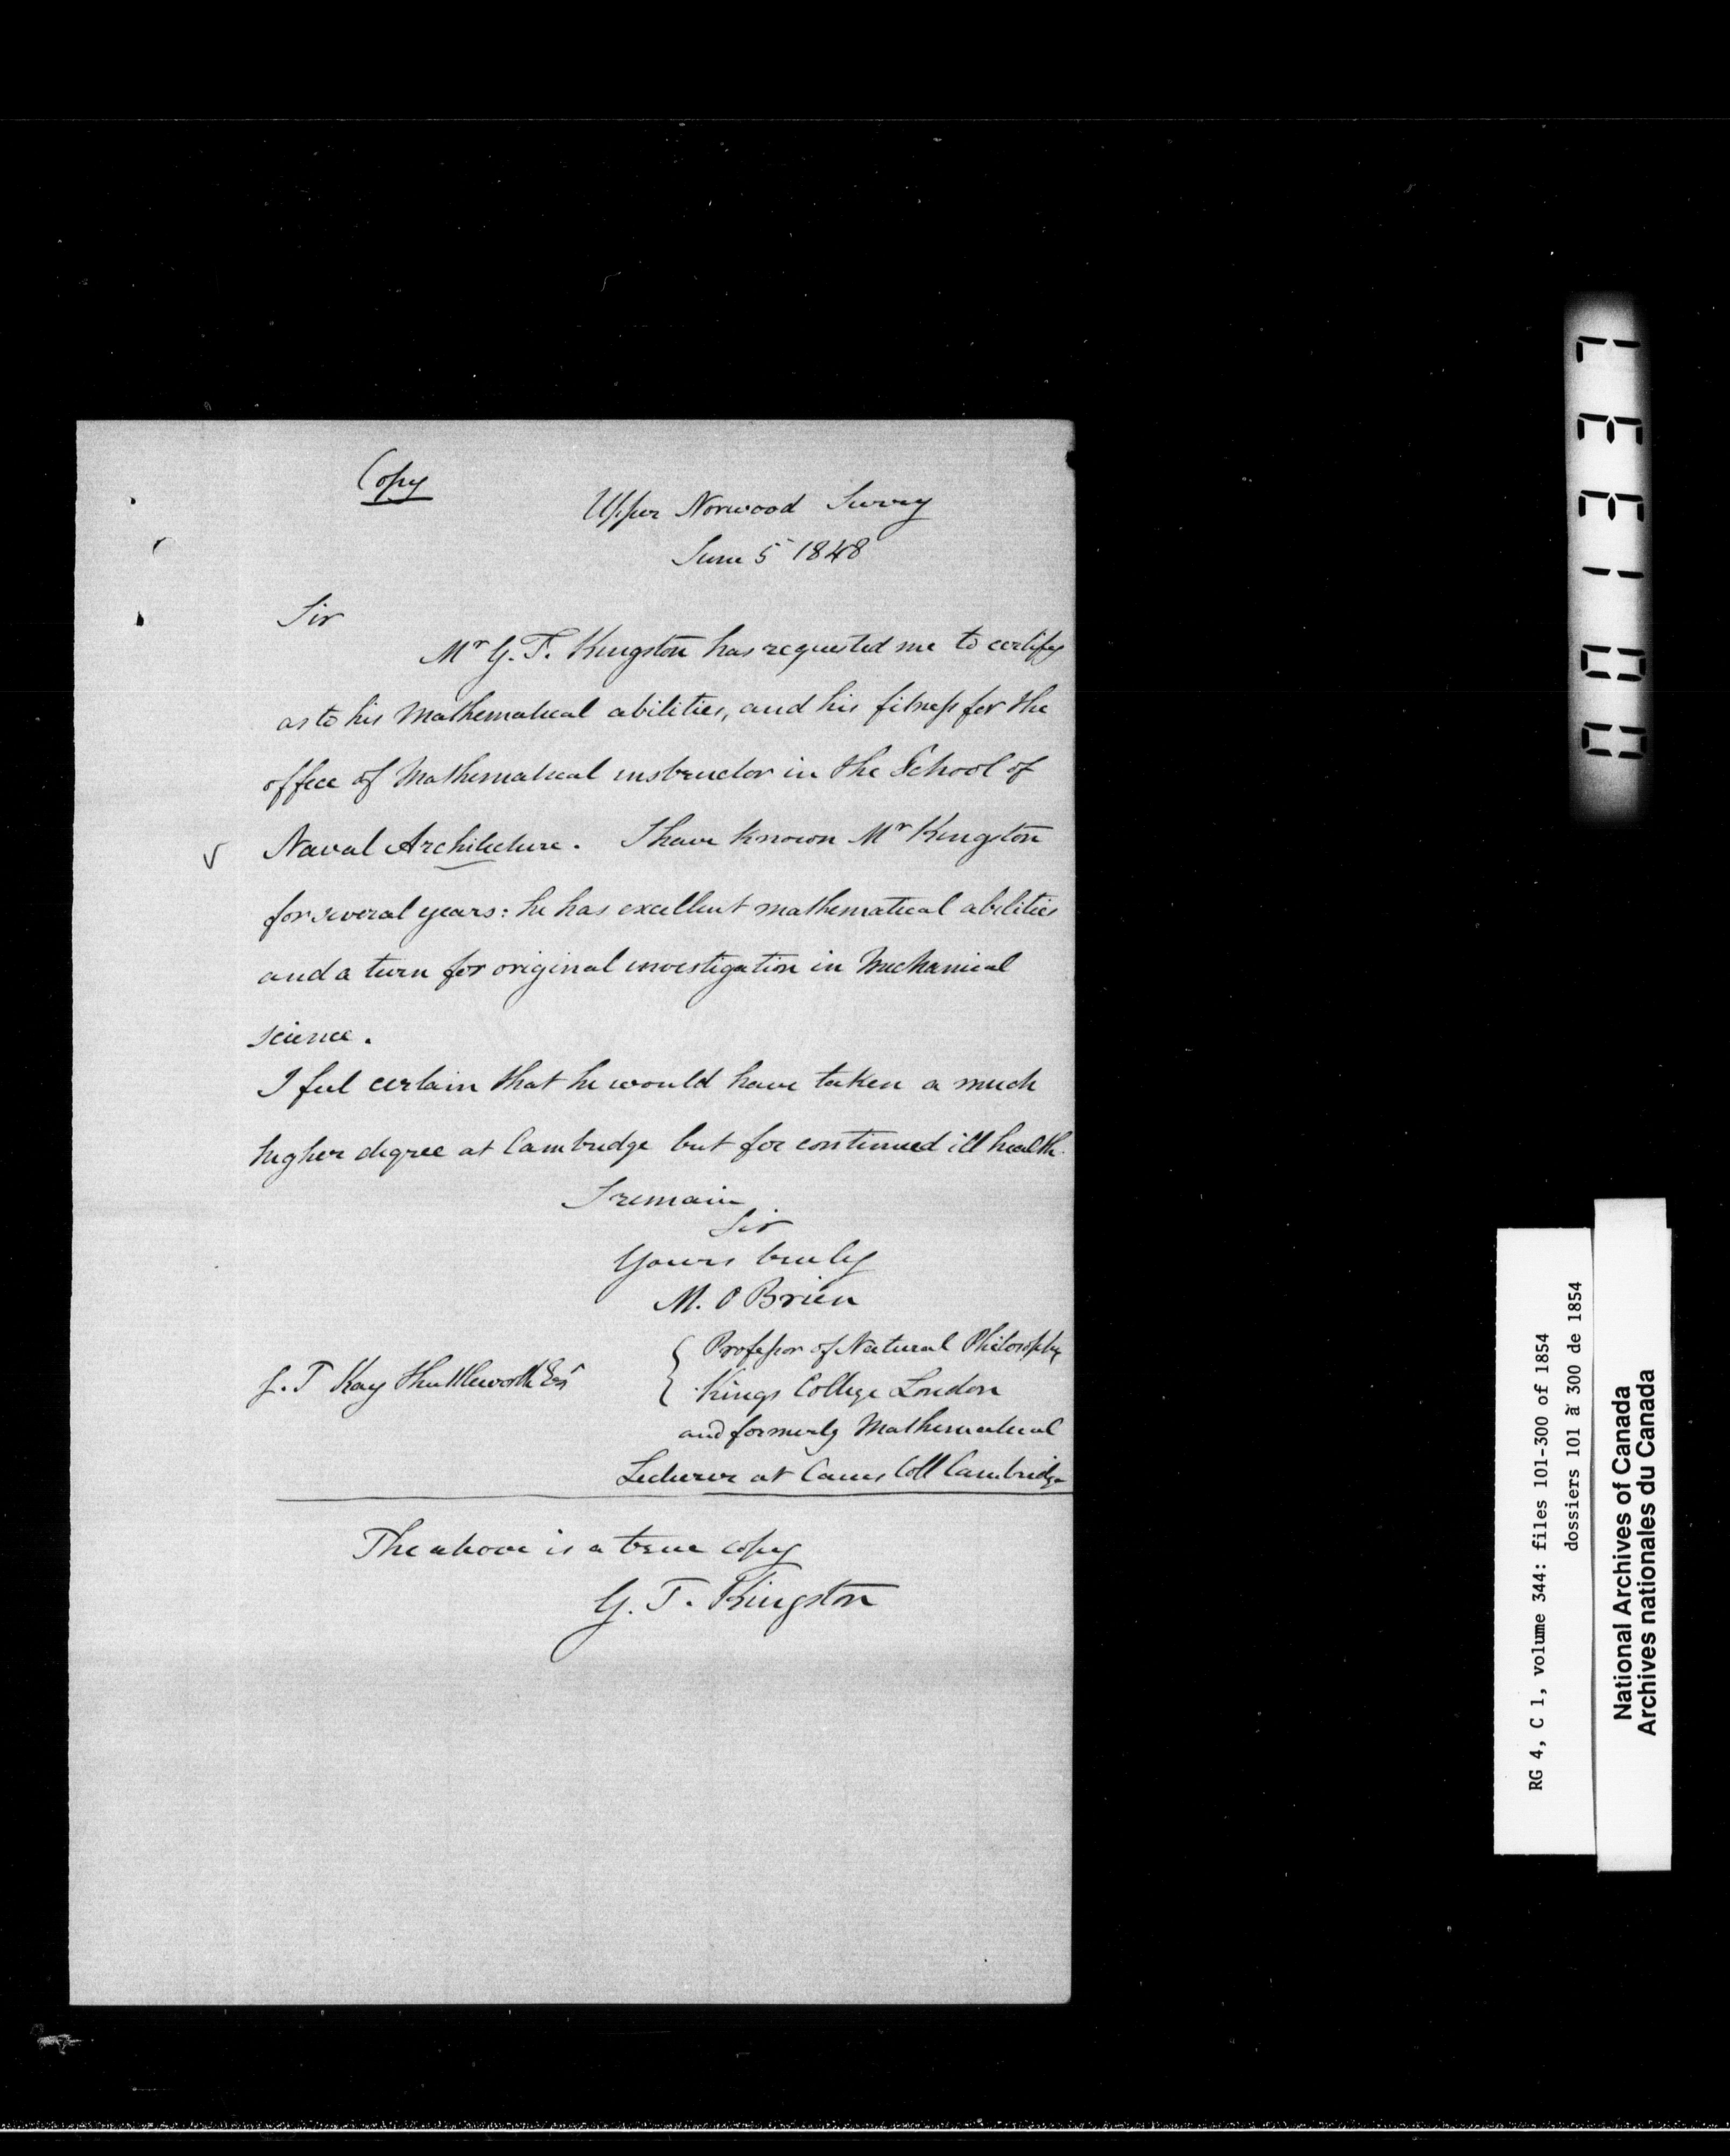 Copy
Upper Norwood Surrey
June 5 1848
Sir
Mr G. T. Kingston has requested me to certify
as to his Mathematical abilities, and his fitness for the
office of Mathematical instructor in the School of
Naval Architecture. I have known Mr Kingston
for several years: he has excellent mathematical abilities
and a turn for original investigation in Mechanical
science.
I feel certain that he would have taken a much
higher degree at Cambridge but for continued ill health.
I remain
Sir
Yours truly
M. O Brien
Professor of Natural Philosophy
J. T Kay Shuttleworth Esqr
Kings College London
and formerly Mathematical
Lecturer at Caius Coll Cambridge
The above is a true copy
G. T. Kingston
RG 4, C 1, volume 344: files 101-300 of 1854
dossiers 101 à 300 de 1854
National Archives of Canada
Archives nationales du Canada